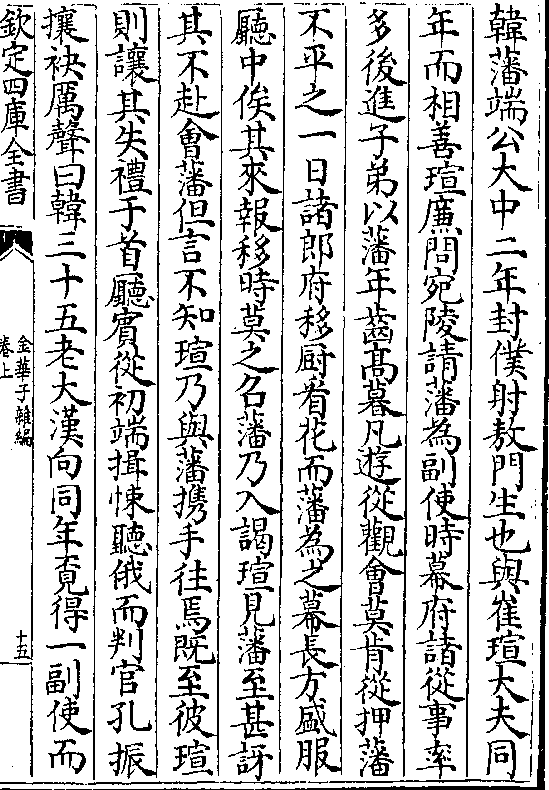 韓藩端公大中二年封僕射敖門生也與崔瑄大夫同
年而相善瑄廉問宛陵請藩為副使時幕府諸從事率
多後進子弟以藩年齒高暮凡遊從觀會莫肯從押藩
不平之一日諸郎府移厨看花而藩為之幕長方盛服
廳中俟其來報移時莫之名藩乃入謁瑄見藩至甚訝
其不赴會藩但言不知瑄乃與藩携手往焉既至彼瑄
則讓其失禮于首廳賓從初端揖悚聽俄而判官孔振
攘袂厲聲曰韓三十五老大漢向同年覔得一副使而
欽定四庫全書
金華子雜編
卷上
十五